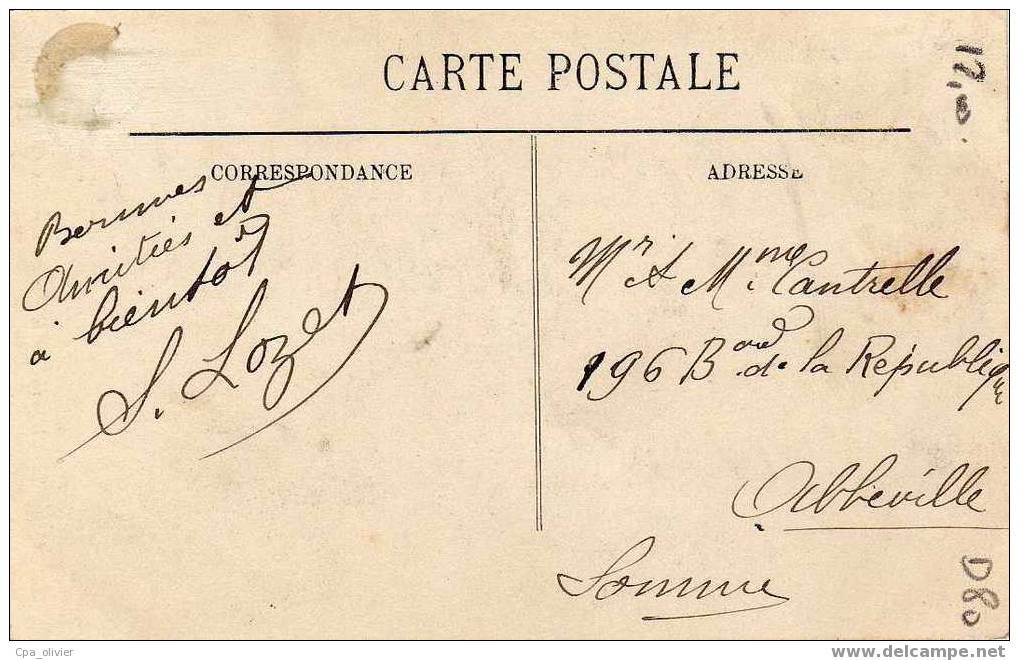 CARTE POSTALE
CORRESPONDANCE
Bonnes
Amitiés et
à bientôt
S. Lozet
ADRESSE
Mr & Mmes Cantrelle
196 Bard de la République
Abbeville
Somme
17,00
D80
Cpa_olivier
www.delcampe.net